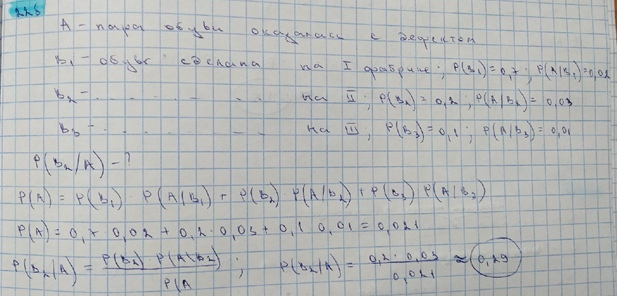 225
A - пара обуви оказалась с дефектом
B₁ - обувь сделана на I фабрике; P(B₁)=0,7; P(A/B₁)=0,02
B₂ - . . . . . . . на II; P(B₂)=0,2; P(A/B₂)=0,03
B₃ - . . . . . . . на III, P(B₃)=0,1; P(A/B₃)=0,01
P(B₂/A) - ?
P(A) = P(B₁) · P(A/B₁) + P(B₂) P(A/B₂) + P(B₃) P(A/B₃)
P(A) = 0,7 · 0,02 + 0,2 · 0,03 + 0,1 · 0,01 = 0,021
P(B₂/A) = P(B₂) P(A\B₂) / P(A ; P(B₂/A) = 0,2 · 0,03 / 0,021 ≈ 0,29